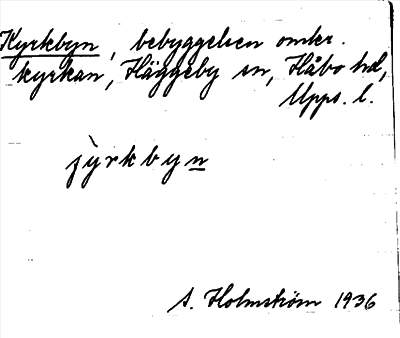 Kyrkbyn, bebyggelsen omkr.
kyrkan, Häggeby sn, Håbo hd,
Upps. l.
jyrkbyn
A. Holmström 1936